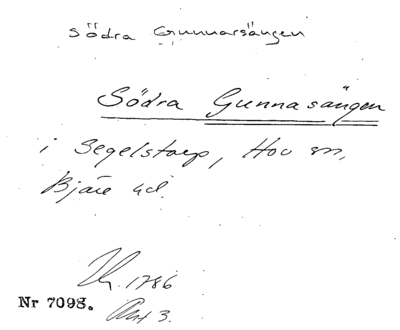 Södra Gunnarsängen
Södra Gunnasängen
i Segelstorp, Hov sn,
Bjäre hd.
1786
Nr 7098. Akt 3.